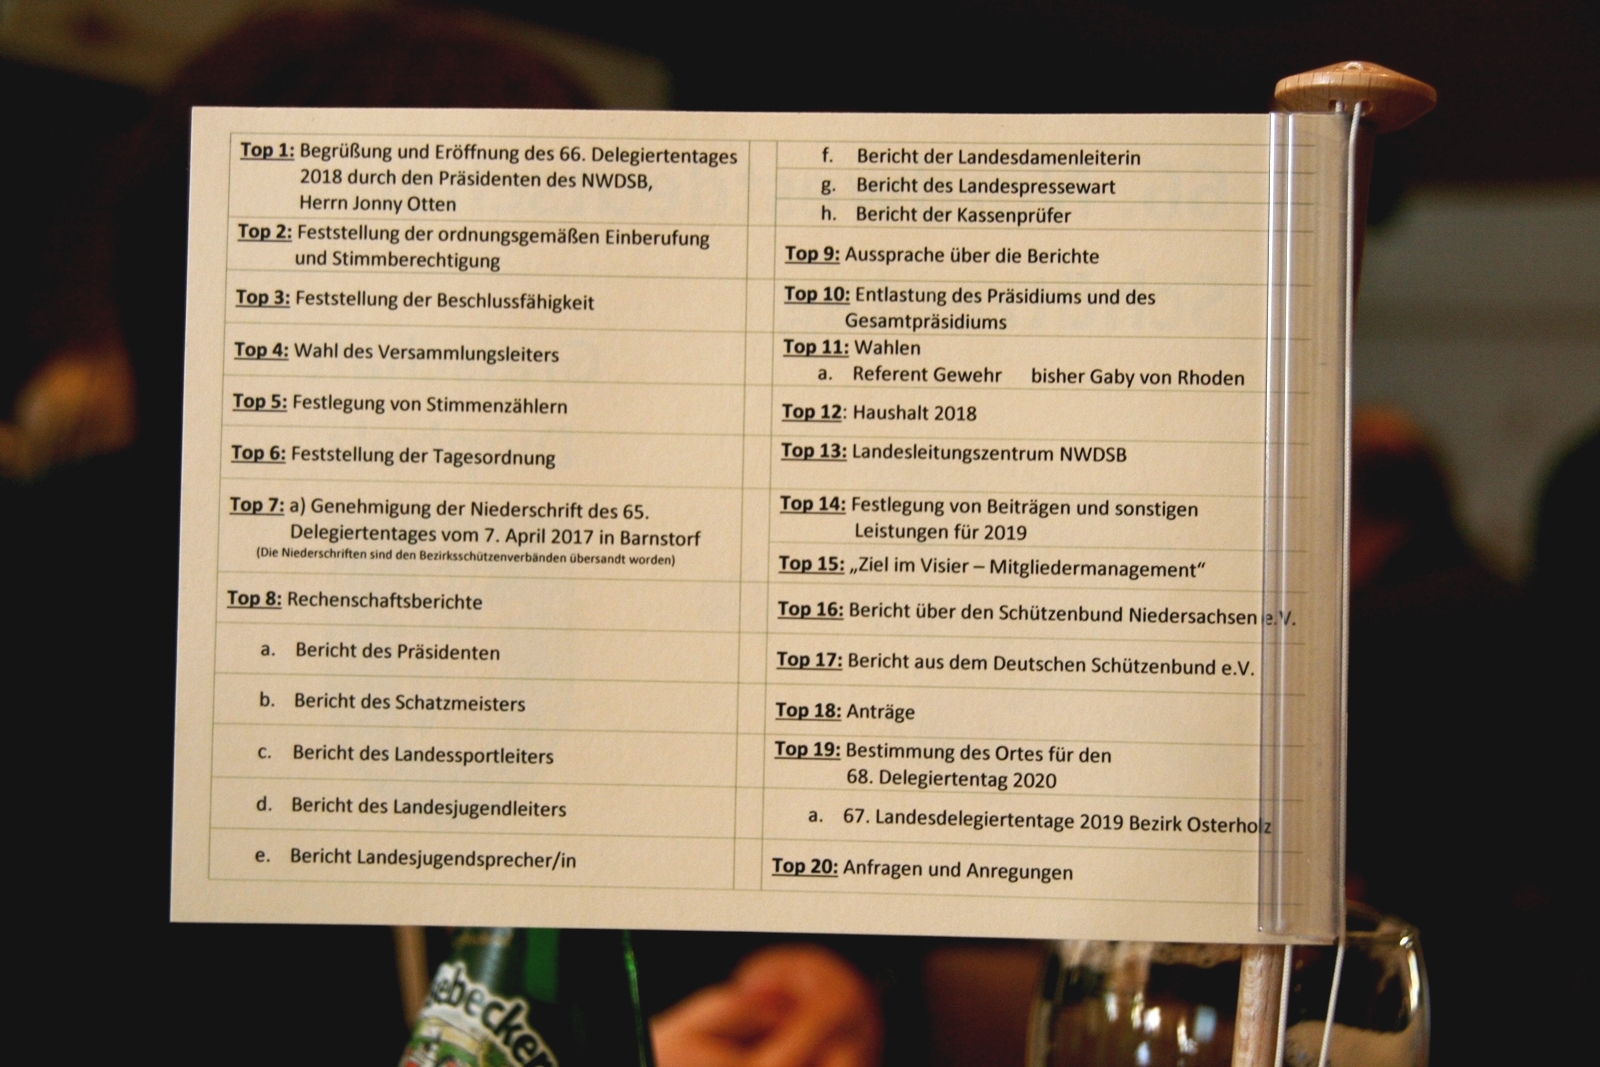 Top 1: Begrüßung und Eröffnung des 66. Delegiertentages
2018 durch den Präsidenten des NWDSB,
Herrn Jonny Otten
Top 2: Feststellung der ordnungsgemäßen Einberufung
und Stimmberechtigung
Top 3: Feststellung der Beschlussfähigkeit
Top 4: Wahl des Versammlungsleiters
Top 5: Festlegung von Stimmenzählern
Top 6: Feststellung der Tagesordnung
Top 7: a) Genehmigung der Niederschrift des 65.
Delegiertentages vom 7. April 2017 in Barnstorf
(Die Niederschriften sind den Bezirksschützenverbänden übersandt worden)
Top 8: Rechenschaftsberichte
a. Bericht des Präsidenten
b. Bericht des Schatzmeisters
c. Bericht des Landessportleiters
d. Bericht des Landesjugendleiters
e. Bericht Landesjugendsprecher/in
f. Bericht der Landesdamenleiterin
g. Bericht des Landespressewart
h. Bericht der Kassenprüfer
Top 9: Aussprache über die Berichte
Top 10: Entlastung des Präsidiums und des
Gesamtpräsidiums
Top 11: Wahlen
a. Referent Gewehr bisher Gaby von Rhoden
Top 12: Haushalt 2018
Top 13: Landesleitungszentrum NWDSB
Top 14: Festlegung von Beiträgen und sonstigen
Leistungen für 2019
Top 15: „Ziel im Visier – Mitgliedermanagement“
Top 16: Bericht über den Schützenbund Niedersachsen e.V.
Top 17: Bericht aus dem Deutschen Schützenbund e.V.
Top 18: Anträge
Top 19: Bestimmung des Ortes für den
68. Delegiertentag 2020
a. 67. Landesdelegiertentage 2019 Bezirk Osterholz
Top 20: Anfragen und Anregungen